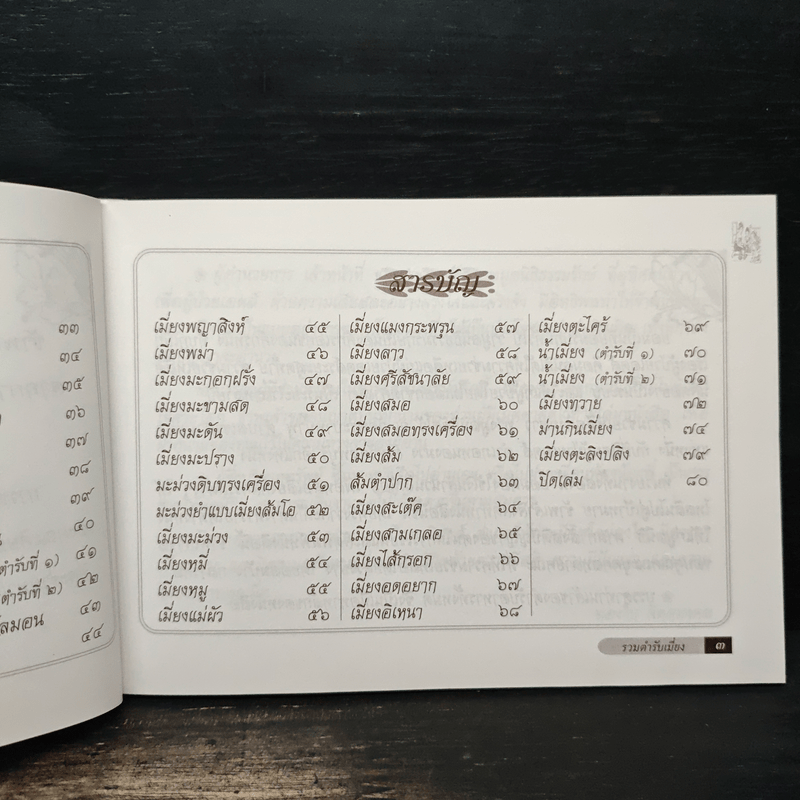 ๓๓
๓๔
๓๕
๓๖
๓๗
๓๘
๓๙
๔๐
ตำรับที่ ๑) ๔๑
ตำรับที่ ๒) ๔๒
ลมอน ๔๓
๔๔
สารบัญ
เมี่ยงพญาสิงห์ ๔๕
เมี่ยงพม่า ๔๖
เมี่ยงมะกอกฝรั่ง ๔๗
เมี่ยงมะขามสด ๔๘
เมี่ยงมะดัน ๔๙
เมี่ยงมะปราง ๕๐
มะม่วงดิบทรงเครื่อง ๕๑
มะม่วงยำแบบเมี่ยงส้มโอ ๕๒
เมี่ยงมะม่วง ๕๓
เมี่ยงหมี่ ๕๔
เมี่ยงหมู ๕๕
เมี่ยงแม่ผัว ๕๖
เมี่ยงแมงกระพรุน ๕๗
เมี่ยงลาว ๕๘
เมี่ยงศรีสัชนาลัย ๕๙
เมี่ยงสมอ ๖๐
เมี่ยงสมอทรงเครื่อง ๖๑
เมี่ยงส้ม ๖๒
ส้มตำปาก ๖๓
เมี่ยงสะเต๊ค ๖๔
เมี่ยงสามเกลอ ๖๕
เมี่ยงไส้กรอก ๖๖
เมี่ยงอดอยาก ๖๗
เมี่ยงอิเหนา ๖๘
เมี่ยงตะไคร้ ๖๙
น้ำเมี่ยง (ตำรับที่ ๑) ๗๐
น้ำเมี่ยง (ตำรับที่ ๒) ๗๑
เมี่ยงทวาย ๗๒
ม่านกินเมี่ยง ๗๔
เมี่ยงตะลิงปลิง ๗๙
ปิดเล่ม ๘๐
รวมตำรับเมี่ยง ๓